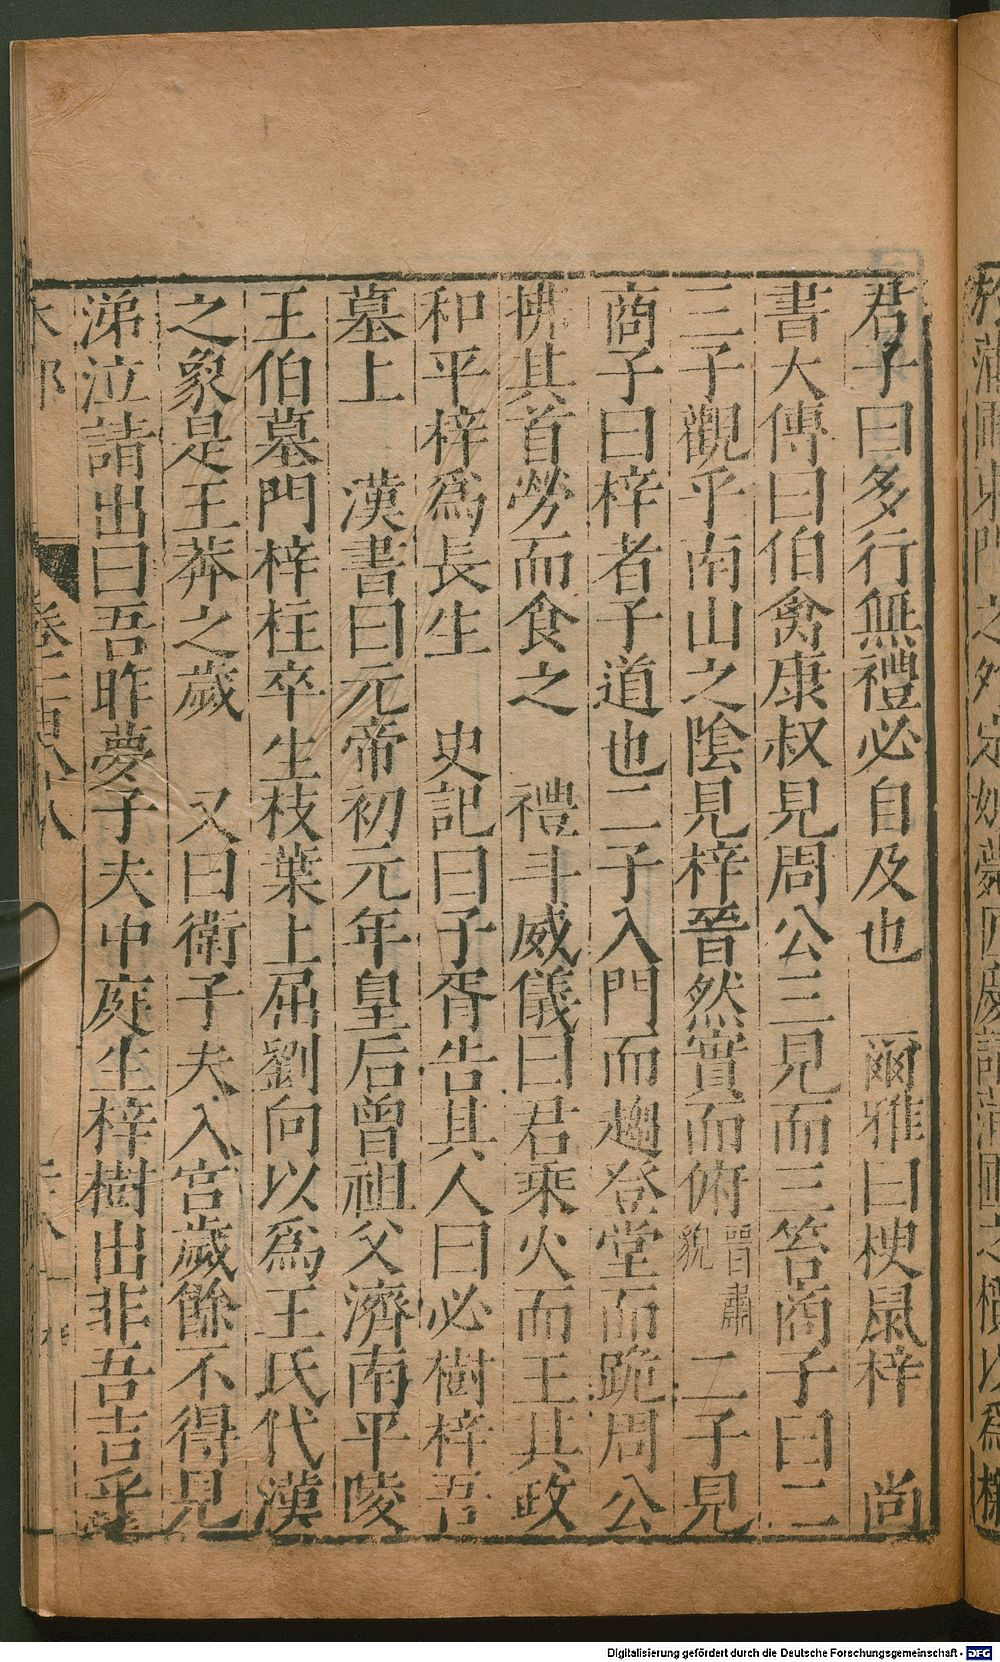 君子曰多行無禮必自及也　爾雅曰梗鼠梓　尚
書大傳曰伯禽康叔見周公三見而三笞商子曰二
三子觀乎南山之陰見梓晉然實而俯晉肅貌二子見
商子曰梓者子道也二子入門而趨登堂而跪周公
拂其首勞而食之　禮斗威儀曰君乘火而王其政
和平梓爲長生　史記曰子胥告其人曰必樹梓吾
墓上　漢書曰元帝初元年皇后曾祖父濟南平陵
王伯墓門梓柱卒生枝葉上屈劉向以爲王氏代漢
之象是王莽之歲　又曰衛子夫入宮歲餘不得見
涕泣請出曰吾昨夢子夫中庭生梓樹出非吾吉乎
木部　卷二百八十八
Digitalisierung gefördert durch die Deutsche Forschungsgemeinschaft - DFG